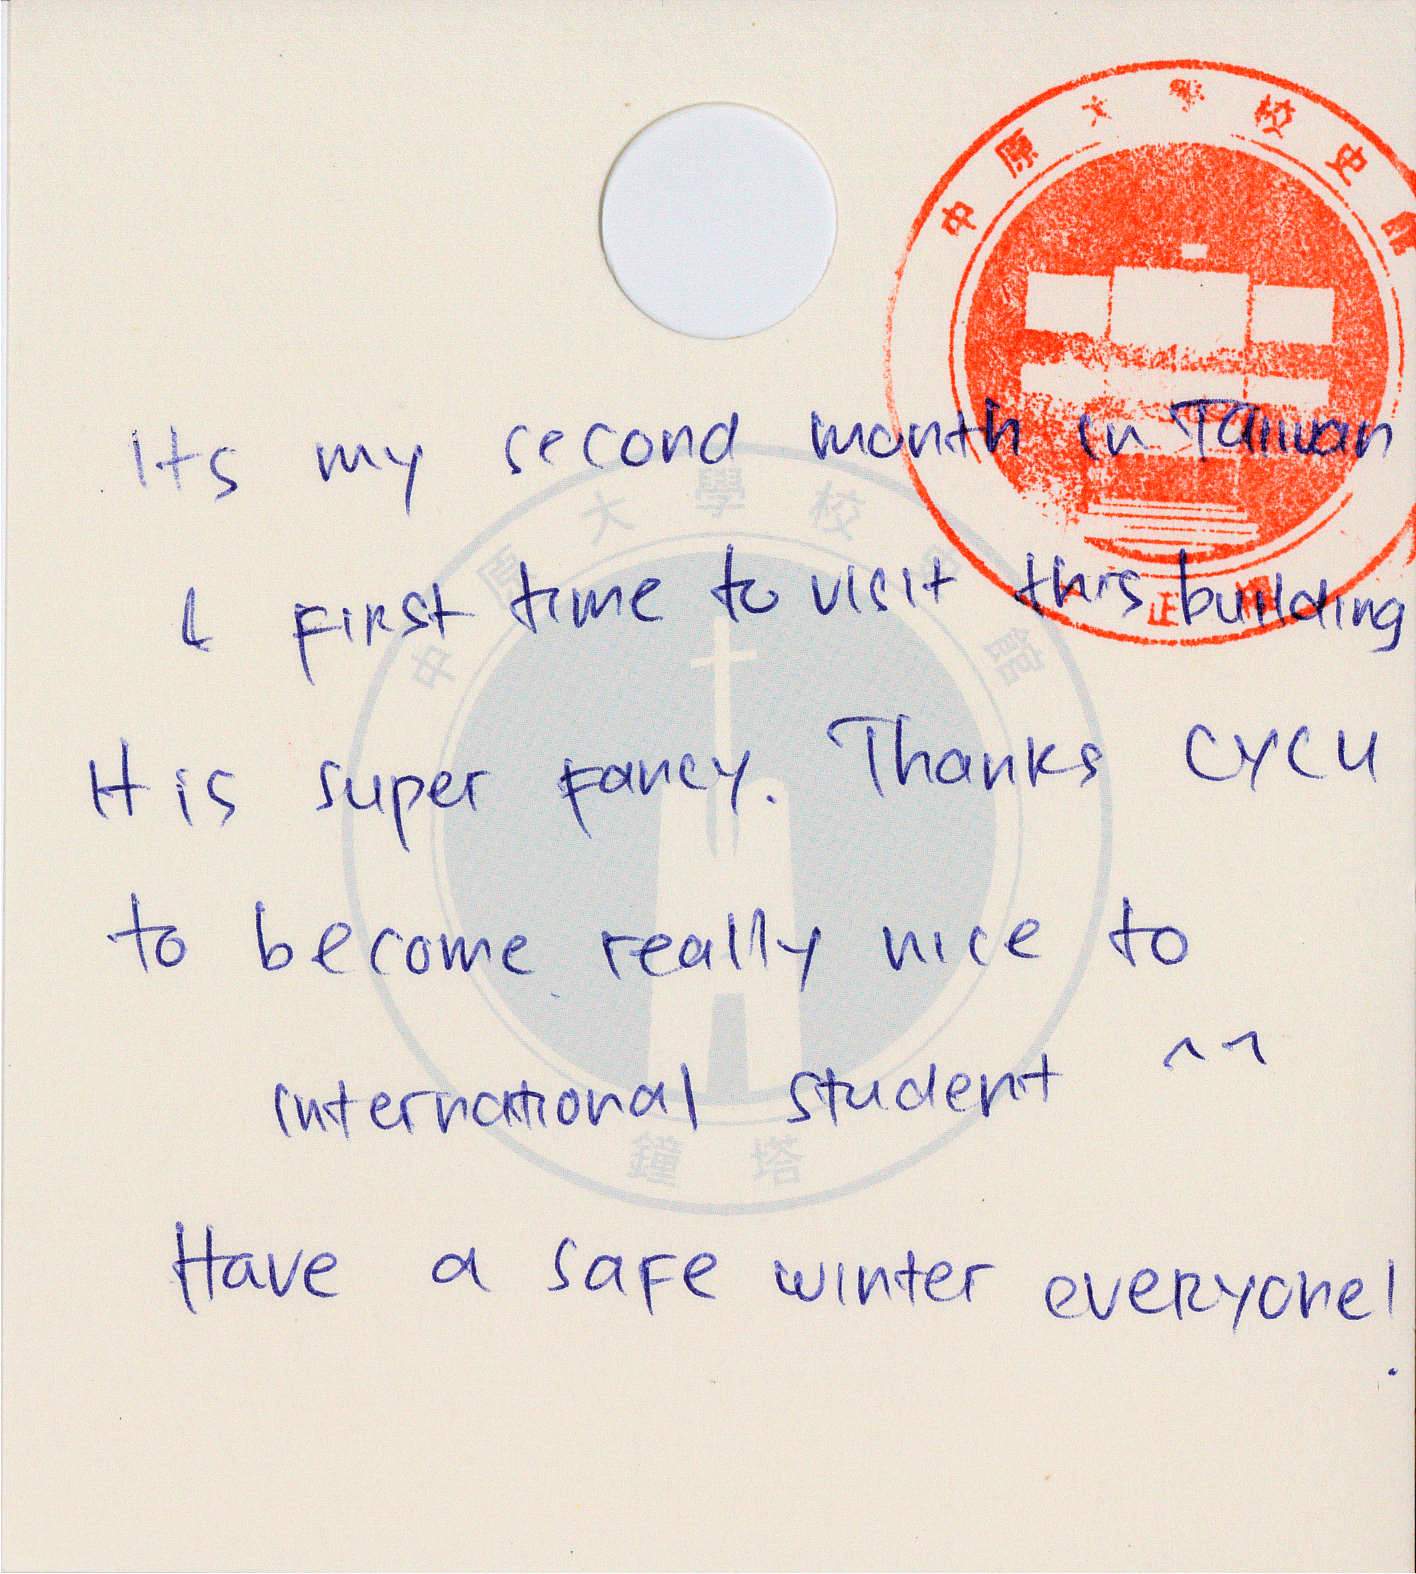 中原大學校史館
Its my second month in Taiwan
大學校
& first time to visit this building
中原 館
正
It is super fancy. Thanks CYCU
to become really nice to
international student ^^
鐘塔
Have a safe winter everyone!